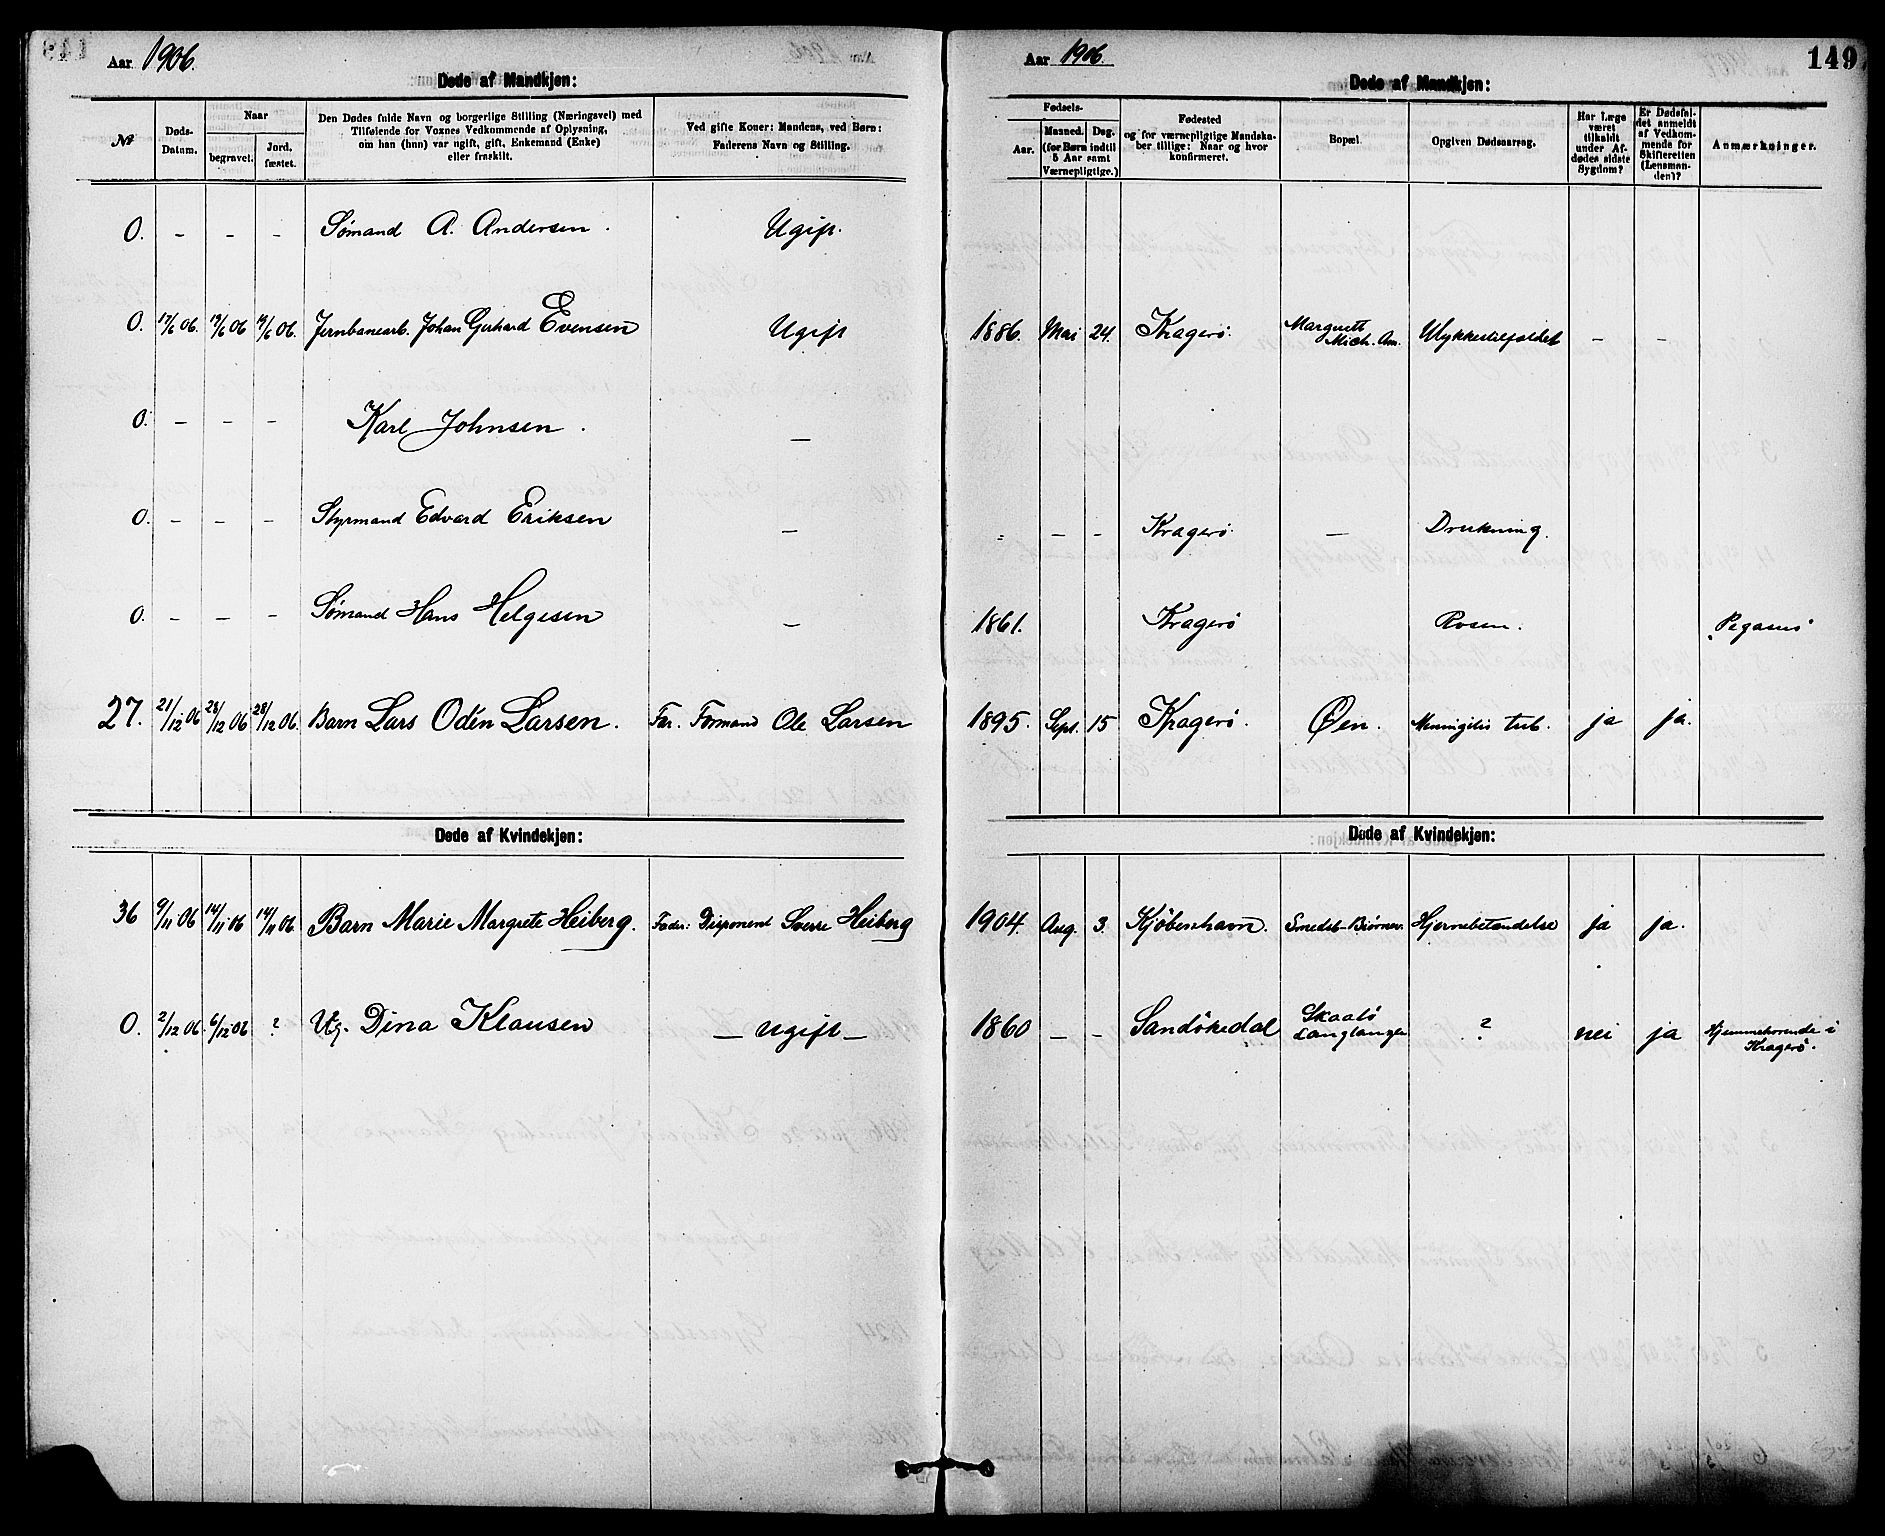 Aar 1906.
Døde af Mandkjøn:
№
Døds-Datum.
Naar
begravet.
Jord, fæstet.
Den Dødes fulde Navn og borgerlige Stilling (Næringsvei) med
Tilføiende for Voxnes Vedkommende af Oplysning,
om han (hun) var ugift, gift, Enkemand (Enke)
eller fraskilt.
Ved gifte Koner: Mandens, ved Børn:
Faderens Navn og Stilling.
0. - - - Sømand A. Andersen. Ugift.
0. 17/6 06. 19/6 06 19/6 06. Jernbanearb. Johan Gerhard Evensen Ugift
0. - - - Karl Johnsen. —
0. - - - Styrmand Edvard Eriksen —
0. - - - Sømand Hans Helgesen —
27. 21/12 06 28/12 06 28/12 06. Barn Lars Odén Larsen. Far. Formand Ole Larsen
Døde af Kvindekjøn:
36 9/11 06 14/11 06 14/11 06 Barn Marie Margrete Heiberg. Fader: Disponent Sverre Heiberg
0. 2/12 06. 6/12 06 ? Ug. Dina Klausen — ugift —
Aar 1906.
149
Døde af Mandkjøn:
Fødsels-
Aar.
Maaned. Dag.
(for Børn indtil
5 Aar samt
Værnepligtige.)
Fødested
og for værnepligtige Mandska-
ber tillige: Naar og hvor
konfirmeret.
Bopæl.
Opgiven Dødsaarsag.
Har Læge
været
tilkaldt
under Af-
dødes sidste
Sygdom?
Er Dødsfal-
det anmeldt
af Vedkom-
mende for
Skifteretten
(Lensman-
den)?
Anmærkninger.
1886. Mai 24. Kragerø. Marquett Mich. Am. Ulykkestilfældet - -
- - - Kragerø. — Drukning.
1861. Kragerø "Pegasus"
1895. Sept. 15 Kragerø. Øen. Meningitis tub. ja ja.
Døde af Kvindekjøn:
1904. Aug. 3. Kjøbenhavn. Hjernebetændelse ja ja.
1860 - - Sandøkedal Skaatø Langtangen ? nei ja Hjemmehørende i Kragerø.